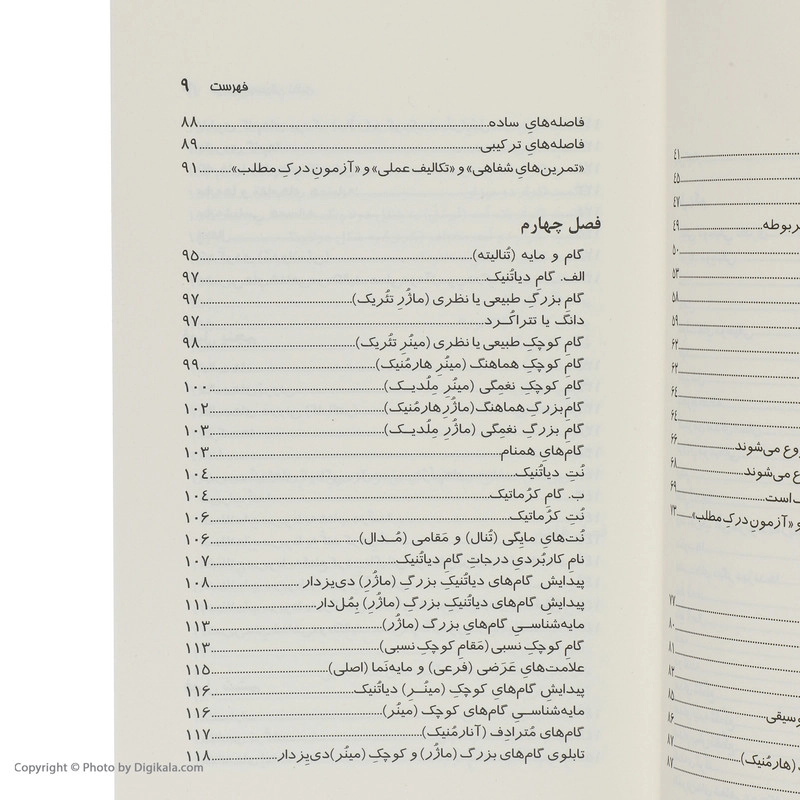 فهرست ۹
فاصله‌هایِ ساده ۸۸
فاصله‌هایِ ترکیبی ۸۹
«تمرین‌هایِ شفاهی» و «تکالیف عملی» و «آزمونِ درکِ مطلب» ۹۱
فصل چهارم
گام و مایه (تُنالیته) ۹۵
الف. گامِ دیاتُنیک ۹۷
گامِ بزرگِ طبیعی یا نظری (ماژُرِ تئُریک) ۹۷
دانگ یا تتراکُرد ۹۷
گامِ کوچکِ طبیعی یا نظری (مینُرِ تئُریک) ۹۸
گامِ کوچکِ هماهنگ (مینُرِ هارمُنیک) ۹۹
گامِ کوچکِ نغمِگی (مینُرِ مِلُدیک) ۱۰۰
گامِ بزرگِ هماهنگ (ماژُرِ هارمُنیک) ۱۰۲
گامِ بزرگِ نغمِگی (ماژُرِ مِلُدیک) ۱۰۳
گام‌هایِ همنام ۱۰۳
نُتِ دیاتُنیک ۱۰۴
ب. گامِ کرُماتیک ۱۰۴
نُتِ کرُماتیک ۱۰۶
نُت‌هایِ مایِگی (تُنال) و مَقامی (مُدال) ۱۰۶
نامِ کاربُردیِ درجاتِ گامِ دیاتُنیک ۱۰۷
پیدایشِ گام‌های دیاتُنیکِ بزرگِ (ماژُرِ) دی‌یزدار ۱۰۸
پیدایشِ گام‌های دیاتُنیکِ بزرگِ (ماژُرِ) بِمُل‌دار ۱۱۱
مایه‌شناسیِ گام‌هایِ بزرگ (ماژُر) ۱۱۳
گامِ کوچکِ نسبی (مَقامِ کوچکِ نسبی) ۱۱۳
علامت‌هایِ عَرَضی (فرعی) و مایه‌نَما (اصلی) ۱۱۵
پیدایشِ گام‌هایِ کوچکِ (مینُرِ) دیاتُنیک ۱۱۶
مایه‌شناسیِ گام‌های کوچک (مینُر) ۱۱۶
گام‌های مُترادِف (آنارمُنیک) ۱۱۷
تابلوی گام‌های بزرگ (ماژُر) و کوچکِ (مینُر) دی‌یِزدار ۱۱۸
۴۱
۴۵
۴۷
ربوطه ۴۹
۵۰
۵۳
۵۸
۵۹
۶۲
۶۲
۶۴
۶۴
وع می‌شوند ۶۶
ع می‌شوند ۶۸
ک است ۶۹
و «آزمونِ درکِ مطلب» ۷۳
۷۷
۸۰
۸۱
۸۲
۸۵
وسیقی ۸۶
۸۷
(هارمُنیک) ۸۷
Copyright © Photo by Digikala.com